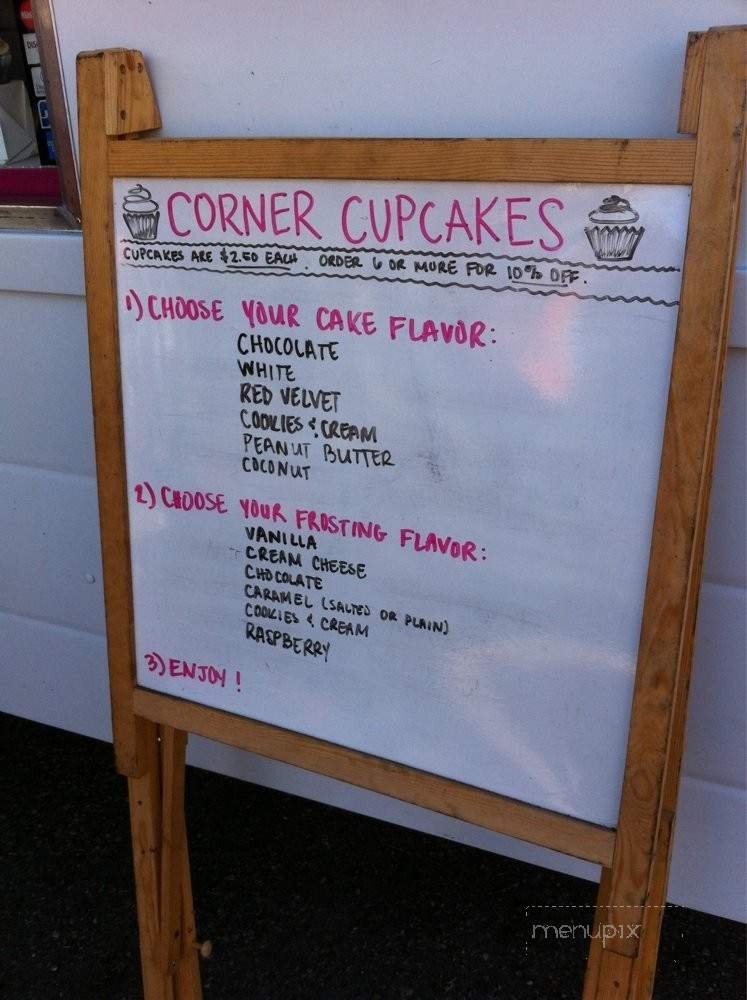 CORNER CUPCAKES
CUPCAKES ARE $2.50 EACH. ORDER 6 OR MORE FOR 10% OFF.
1) CHOOSE YOUR CAKE FLAVOR:
CHOCOLATE
WHITE
RED VELVET
COOKIES & CREAM
PEANUT BUTTER
COCONUT
2) CHOOSE YOUR FROSTING FLAVOR:
VANILLA
CREAM CHEESE
CHOCOLATE
CARAMEL (SALTED OR PLAIN)
COOKIES & CREAM
RASPBERRY
3) ENJOY!
menupix